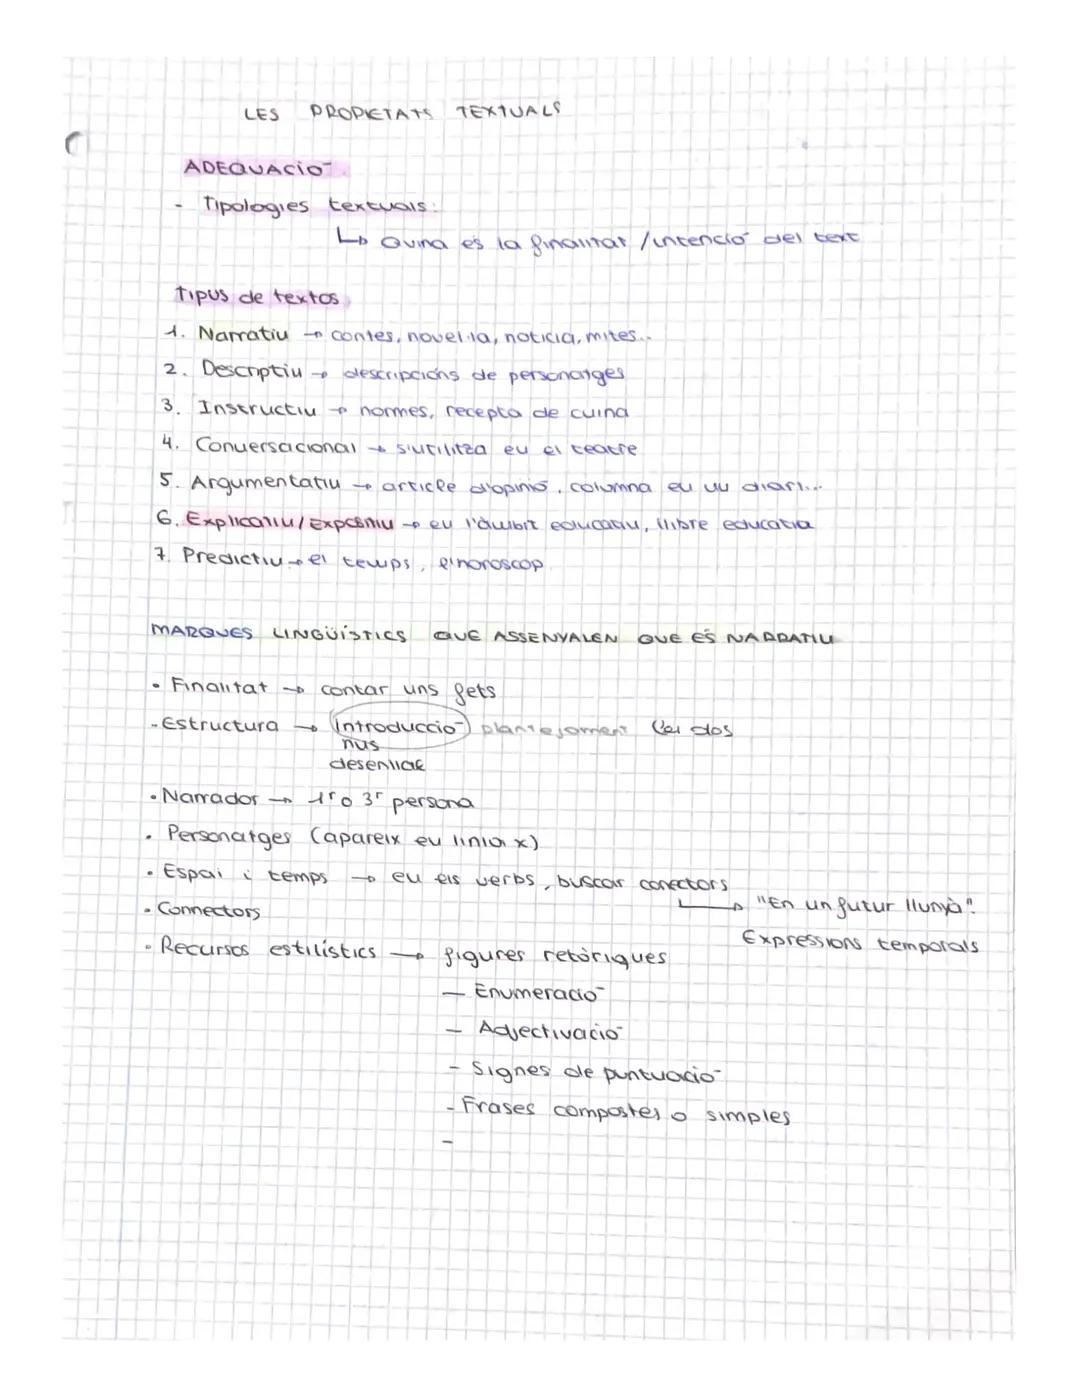 LES PROPIETATS TEXTUALS
ADEQUACIÓ
- Tipologies textuals:
↳ Quina és la finalitat / intenció del text
Tipus de textos
1. Narratiu → contes, novel·la, notícia, mites...
2. Descriptiu → descripcions de personatges
3. Instructiu → normes, recepta de cuina
4. Conversacional → s'utilitza en el teatre
5. Argumentatiu → article d'opinió, columna en un diari...
6. Explicatiu / Expositiu → en l'àmbit educatiu, llibre educatiu
7. Predictiu → el temps, l'horoscop
MARQUES LINGÜÍSTICS QUE ASSENYALEN QUE ÉS NARRATIU
• Finalitat → contar uns fets
- Estructura → introducció plantejament les dos
nus
desenllaç
• Narrador → 1r o 3r persona
• Personatges (apareix en línia x)
• Espai i temps → en els verbs, buscar conectors
→ "En un futur llunyà".
• Connectors
Expressions temporals
• Recursos estilístics → figures retòriques
- Enumeració
- Adjectivació
- Signes de puntuació
- Frases compostes o simples
-